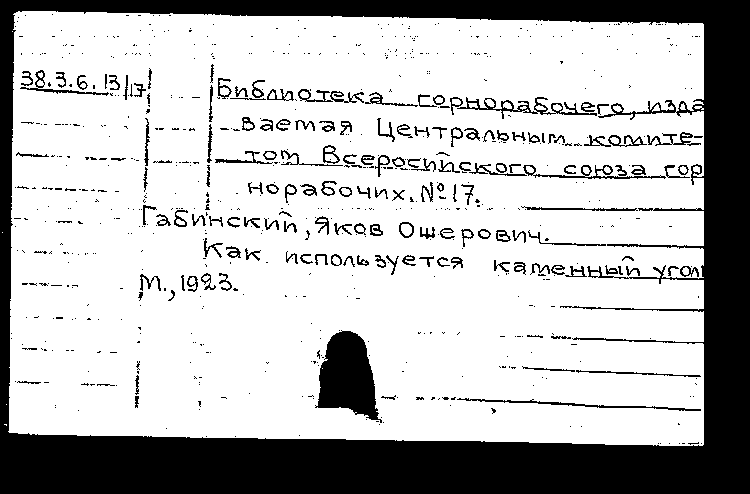 38.3.6.13/17
Библиотека горнорабочего, изда
ваемая Центральным комите-
том Всеросийского союза гор
норабочих. №17.
Габинский, Яков Ошерович.
Как используется каменный угол
М., 1923.